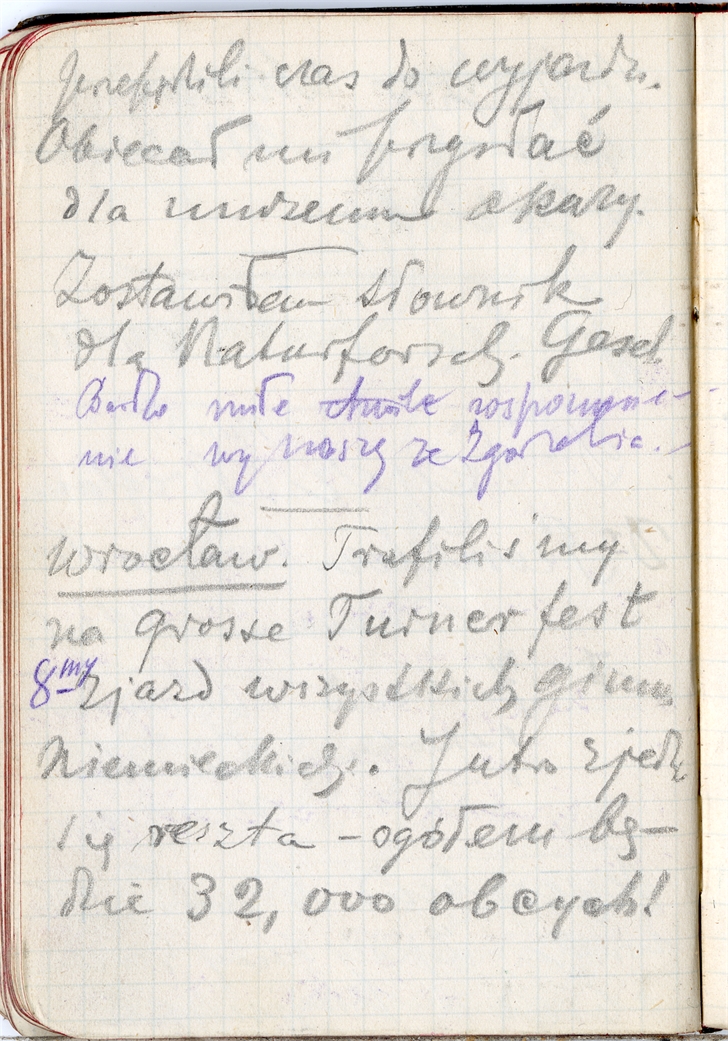 przepędzili czas do wyjazdu.
Obiecał mi przysłać
dla muzeum okazy.
Zostawiłem słownik
dla Naturforsch. Gesel.
Bardzo miłe chwile wspomnie-
nie wynoszę ze Zgorzelic.
Wrocław. Trafiliśmy
na grosse Turnerfest
8my zjazd wszystkich gimn
Niemieckich. Jutro zjedz
się reszta – ogółem bę–
dzie 32,000 obcych!